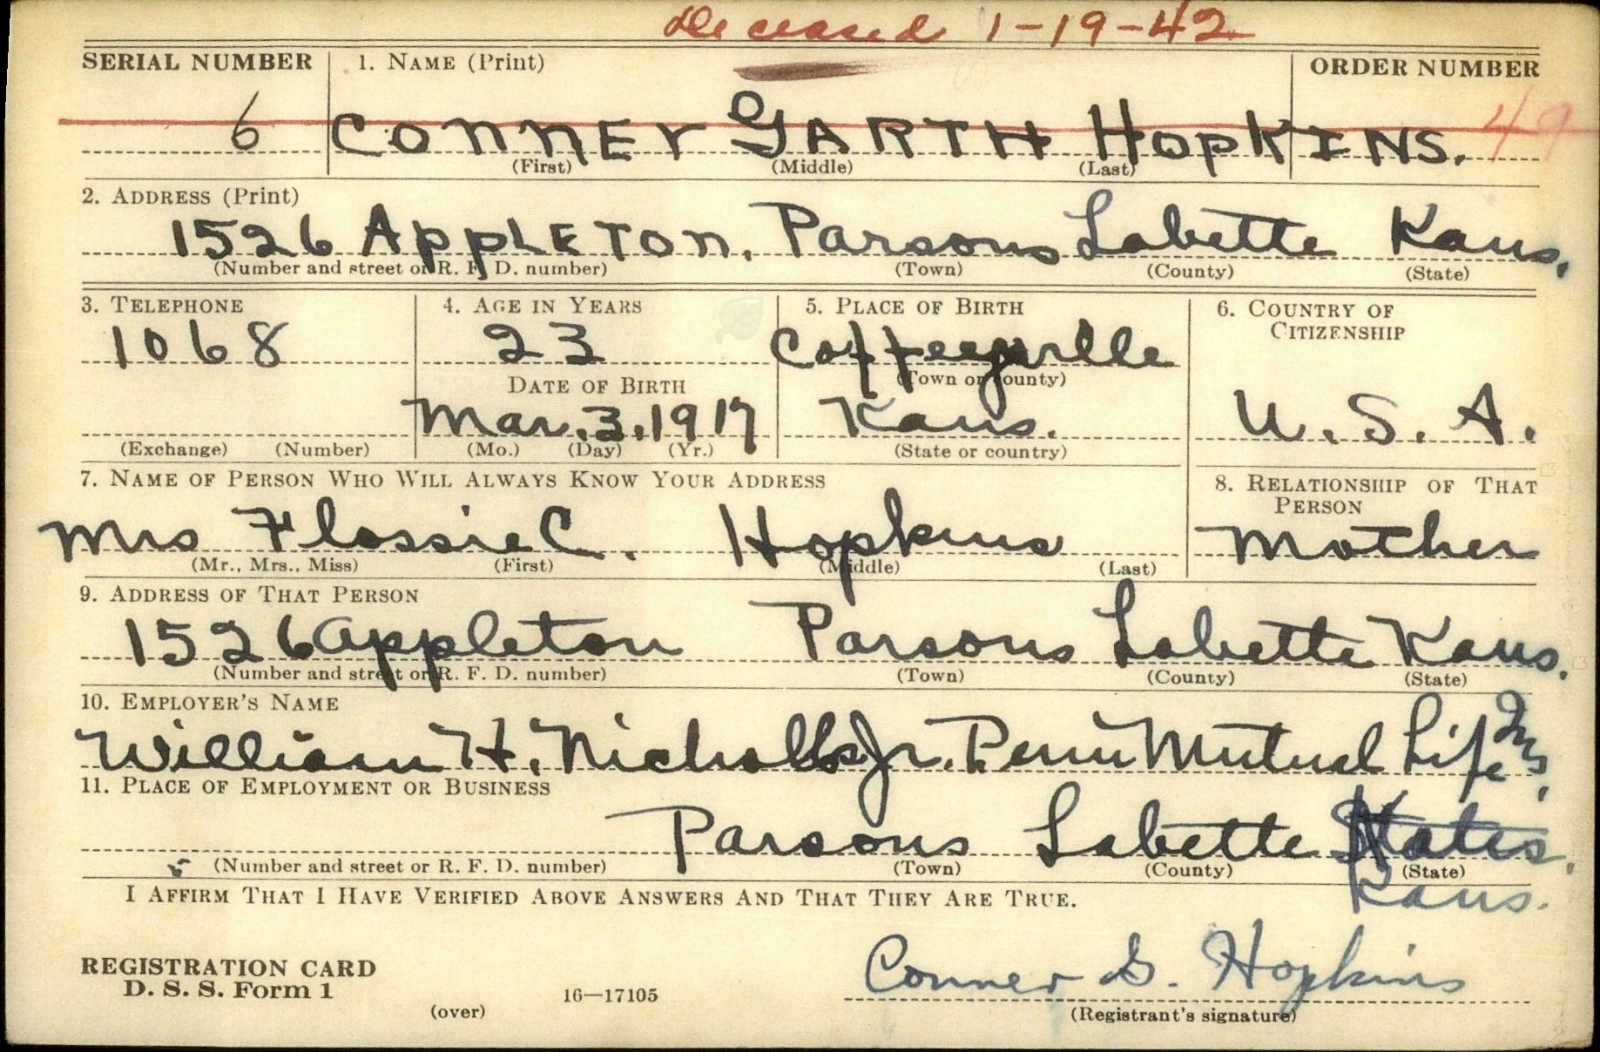 Deceased 1-19-42
SERIAL NUMBER 1. NAME (Print) ORDER NUMBER
6 CONNER GARTH HOPKINS. 49
(First) (Middle) (Last)
2. ADDRESS (Print)
1526 APPLETON. Parsons Labette Kans.
(Number and street or R. F. D. number) (Town) (County) (State)
3. TELEPHONE 4. AGE IN YEARS 5. PLACE OF BIRTH 6. COUNTRY OF CITIZENSHIP
1068 23 Coffeyville
(Town or county)
DATE OF BIRTH
Mar. 3. 1917 Kans. U. S. A.
(Exchange) (Number) (Mo.) (Day) (Yr.) (State or country)
7. NAME OF PERSON WHO WILL ALWAYS KNOW YOUR ADDRESS 8. RELATIONSHIP OF THAT PERSON
Mrs Flossie C. Hopkins Mother
(Mr., Mrs., Miss) (First) (Middle) (Last)
9. ADDRESS OF THAT PERSON
1526 Appleton Parsons Labette Kans.
(Number and street or R. F. D. number) (Town) (County) (State)
10. EMPLOYER'S NAME
William H. Nicholls Jr. Penn Mutual Life Ins.
11. PLACE OF EMPLOYMENT OR BUSINESS
Parsons Labette States.
(Number and street or R. F. D. number) (Town) (County) (State)
Kans.
I AFFIRM THAT I HAVE VERIFIED ABOVE ANSWERS AND THAT THEY ARE TRUE.
REGISTRATION CARD
D. S. S. Form 1
(over) 16—17105
Conner G. Hopkins
(Registrant's signature)